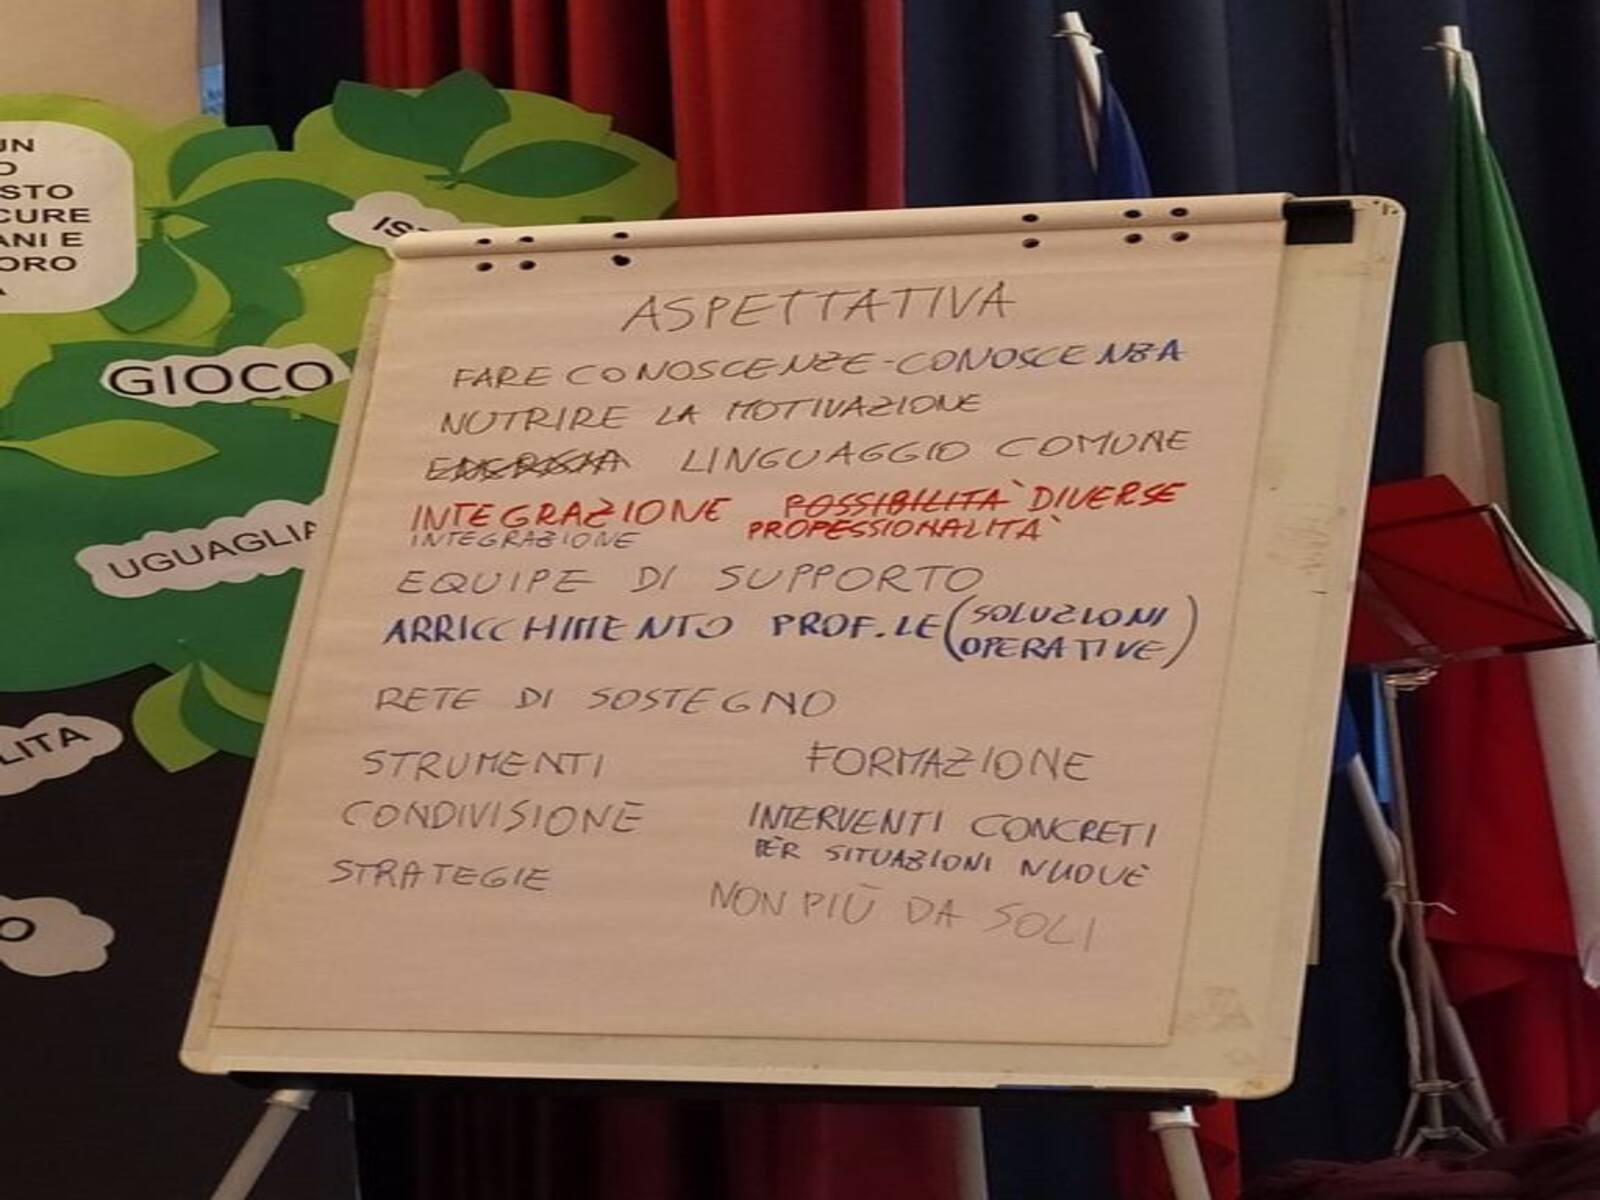 UN
O
STO
CURE
ANI E
ORO
A
IS
GIOCO
UGUAGLIA
LITA
O
ASPETTATIVA
FARE CONOSCENZE-CONOSCENZA
NUTRIRE LA MOTIVAZIONE
ENERGIA LINGUAGGIO COMUNE
INTEGRAZIONE POSSIBILITA' DIVERSE
INTEGRAZIONE PROFESSIONALITA'
EQUIPE DI SUPPORTO
ARRICCHIMENTO PROF.LE (SOLUZIONI
OPERATIVE)
RETE DI SOSTEGNO
STRUMENTI FORMAZIONE
CONDIVISIONE INTERVENTI CONCRETI
PER SITUAZIONI NUOVE
STRATEGIE
NON PIÙ DA SOLI